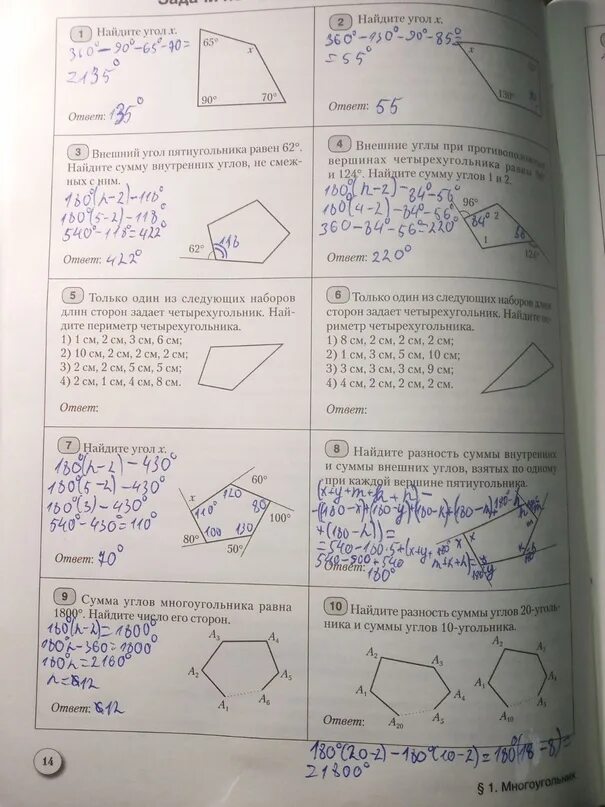 1 Найдите угол x.
360°-90°-65°-70=
=135°
65°
x
90°
70°
Ответ: 135°
2 Найдите угол x.
360°-130°-90°-85°=
=55°
x
130°
Ответ: 55
3 Внешний угол пятиугольника равен 62°.
Найдите сумму внутренних углов, не смеж-
ных с ним.
180°(n-2)-118°
180°(5-2)-118°
540°-118°=422°
62°
118
Ответ: 422°
4 Внешние углы при
вершинах четырехугольника
и 124°. Найдите сумму углов 1 и 2.
180°(n-2)-84°-56°
180°(4-2)-84°-56°
360-84°-56°=220°
96°
84°
2
1
56
124°
Ответ: 220°
5 Только один из следующих наборов
длин сторон задает четырехугольник. Най-
дите периметр четырехугольника.
1) 1 см, 2 см, 3 см, 6 см;
2) 10 см, 2 см, 2 см, 2 см;
3) 2 см, 2 см, 5 см, 5 см;
4) 2 см, 1 см, 4 см, 8 см.
Ответ:
6 Только один из следующих наборов длин
сторон задает четырехугольник. Найдите
риметр четырехугольника.
1) 8 см, 2 см, 2 см, 2 см;
2) 1 см, 3 см, 5 см, 10 см;
3) 3 см, 3 см, 3 см, 9 см;
4) 4 см, 2 см, 2 см, 2 см.
Ответ:
7 Найдите угол x.
180°(n-2)-430°
180°(5-2)-430°
180°(3)-430°
540°-430°=110°
x
60°
110°
120
80
100°
100
130
80°
50°
Ответ: 70°
8 Найдите разность суммы внутренних
и суммы внешних углов, взятых по одному
при каждой вершине пятиугольника.
=540-180·5+(x+y+
m+k+n)=
540-900+540
Ответ: 180°
9 Сумма углов многоугольника равна
1800°. Найдите число его сторон.
180°(n-2)=1800°
180°n-360=1800°
180°n=2160°
n=12
A₃
A₄
A₂
A₅
A₁
A₆
Ответ: 12
10 Найдите разность суммы углов 20-уголь-
ника и суммы углов 10-угольника.
A₂
A₃
A₁
A₄
A₂₀
A₅
A₂
A₃
A₁
A₄
A₁₀
A₅
180°(20-2)-180°(10-2)=180°(18-8)=
=1800°
14
§ 1. Многоугольник